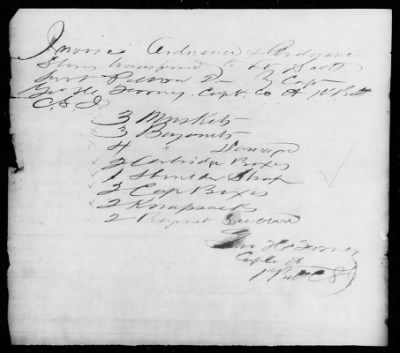 Invoice Ordnance & Ordnance
Stores transferred to Lt Scott
Fort By Capt
Geo H. Forney. Capt. Co A 1st Batt
C. S. I.
3 Muskets
3 Bayonets
4 " Damaged
2 Cartridge Boxes
1 Shoulder Strap
3 Cap Boxes
2 Knapsacks
2 Bayonet
Geo H Forney
Capt Co A
1st Batt C S I